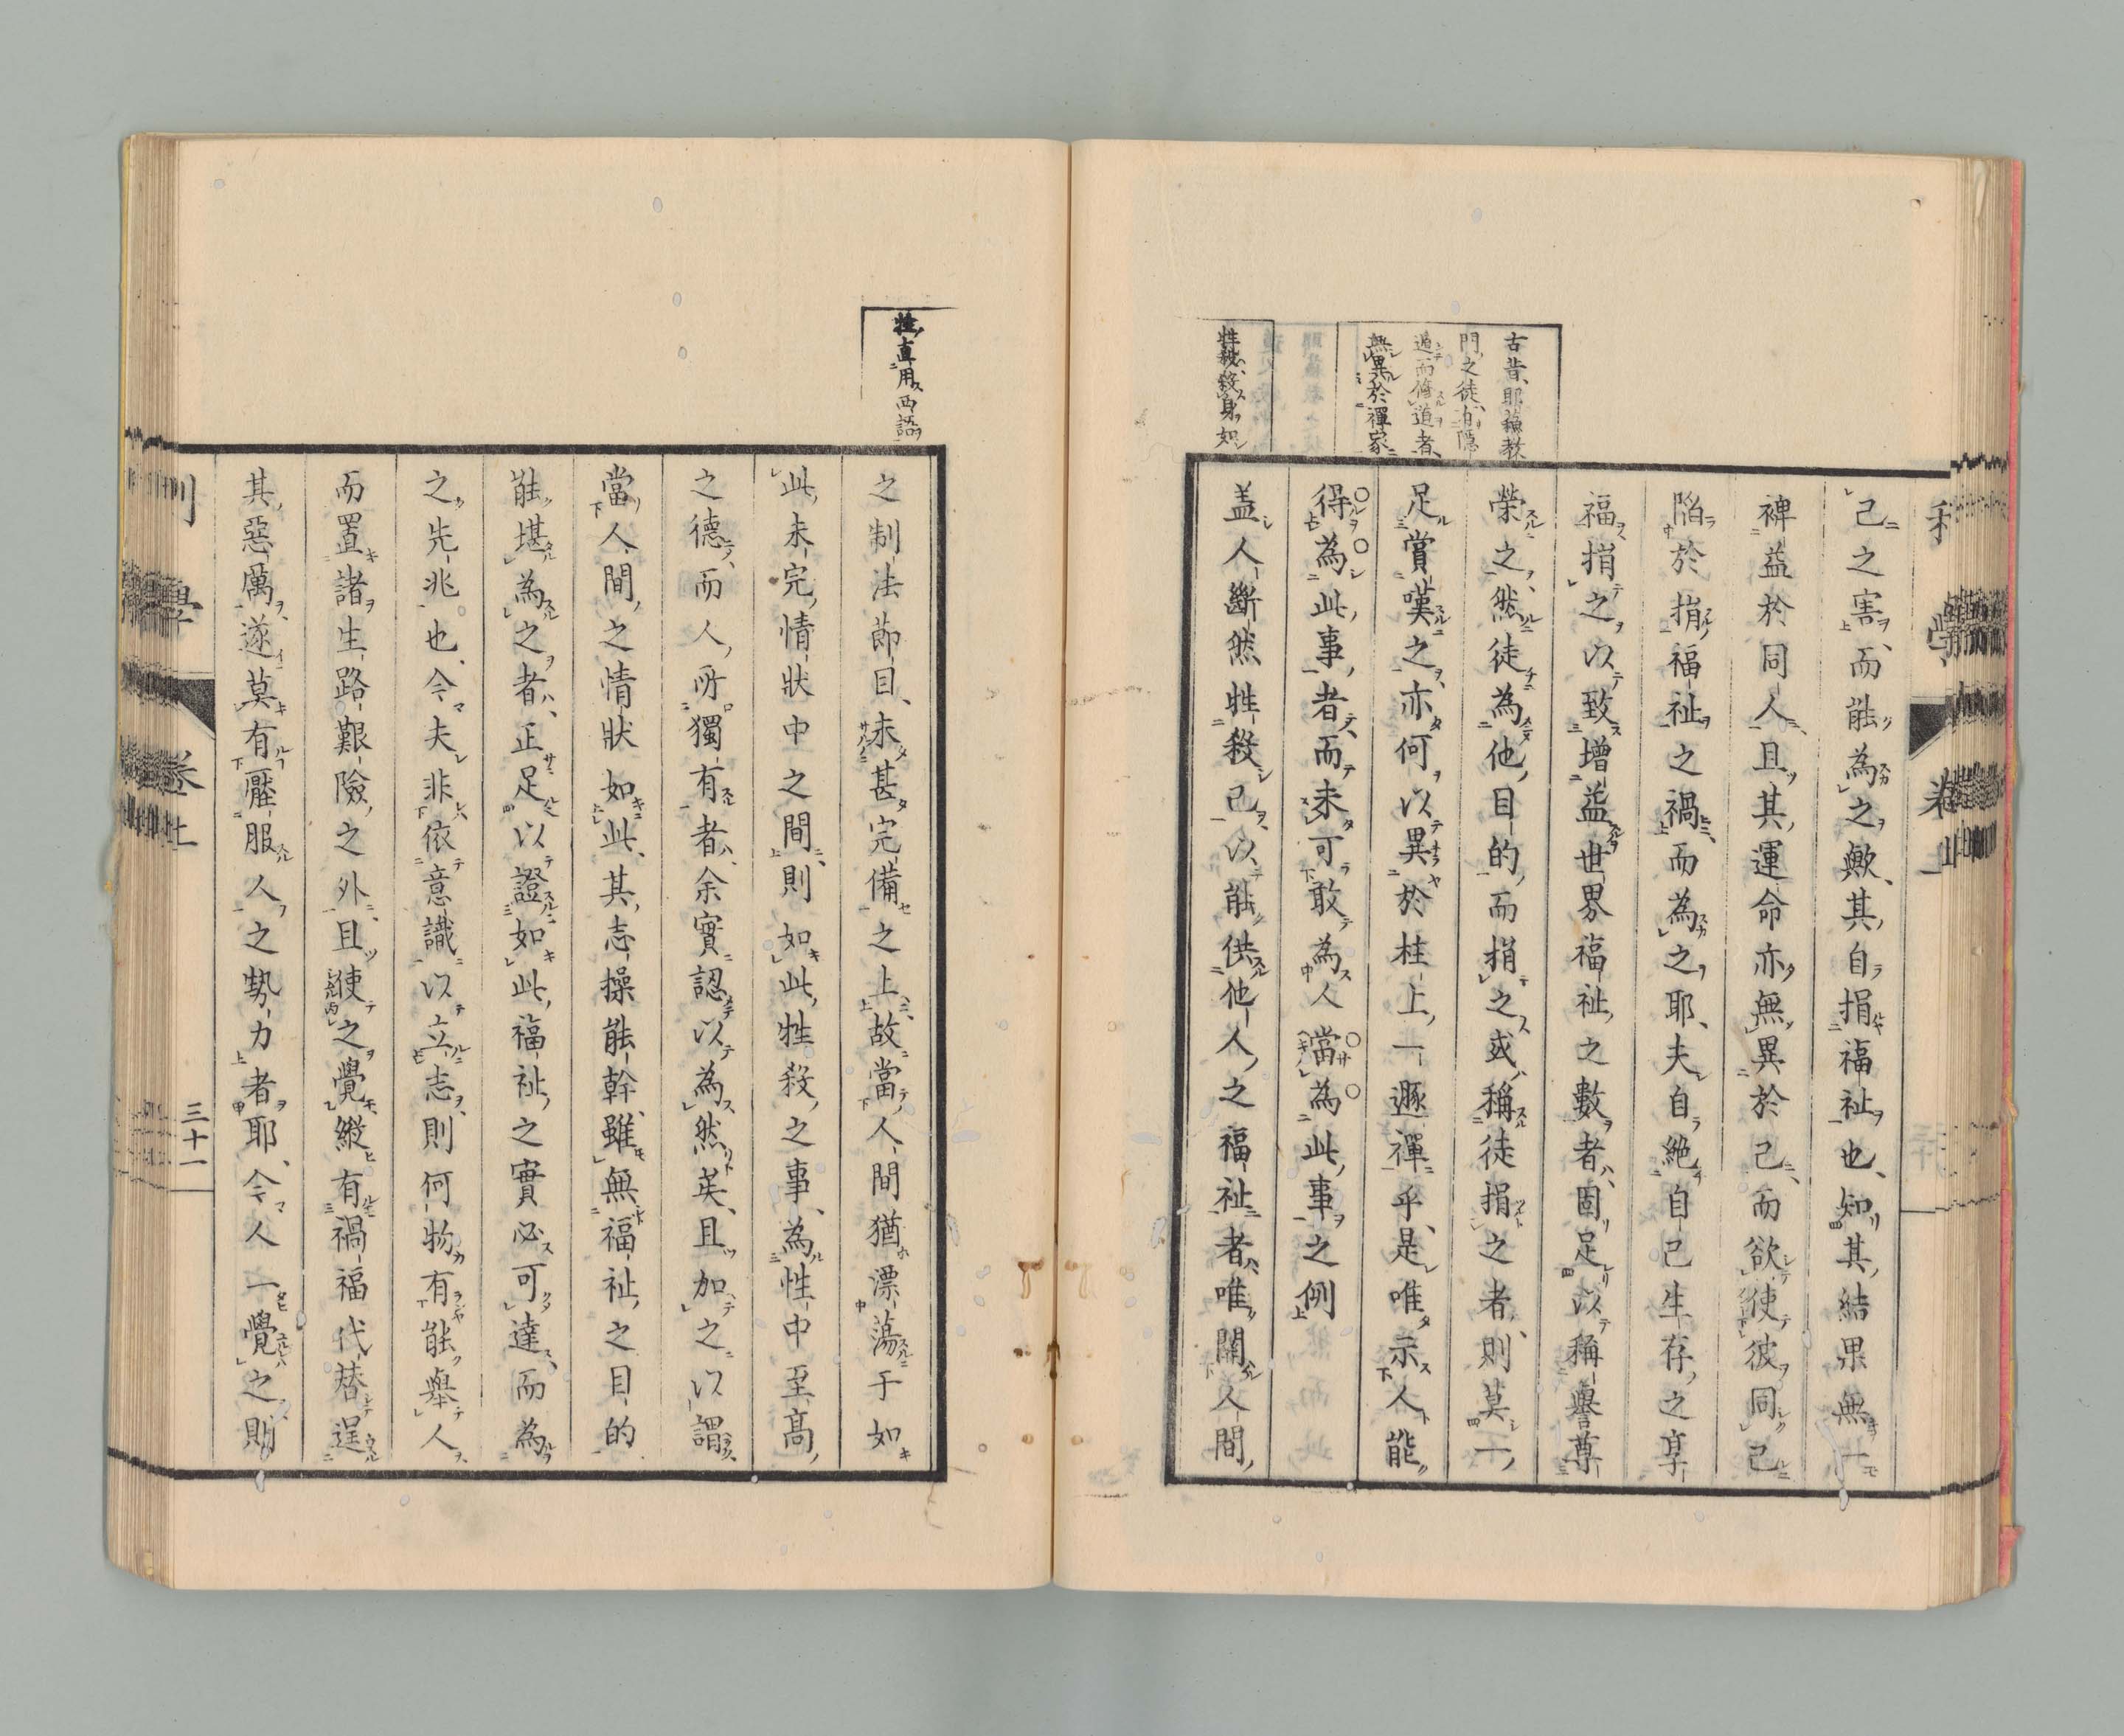 古昔、耶蘇教
門之徒、有隠
遁而脩道者、
無異於禪家
牲殺、殺身如
己之害、而能為之歟、其自捐福祉也、知其結果無一
裨益於同人、且其運命亦無異於己、而欲使彼同己
陷於捐福祉之禍、而為之耶、夫自絶自己生存之享
福、捐之以致增益世界福祉之數者、固足以稱譽尊
榮之、然徒為他目的而捐之、或稱徒捐之者、則莫一
足賞嘆之、亦何以異於柱上一遯禪乎、是唯示人能
得為此事者、而未可敢為人當為此事之例
盖人斷然牲殺己、以能供他人之福祉者、唯關人間
牲、直用西語
之制法節目、未甚完備之上、故當人間猶漂蕩于如
此未完情狀中之間、則如此牲殺之事、為性中至高
之德、而人所獨有者、余實認以為然矣、且加之以謂
當人間之情狀如此、其志操能幹、雖無福祉之目的
能堪為之者、正足以證如此福祉之實必可達、而為
之先兆也、今夫非依意識以立志、則何物有能舉人
而置諸生路艱險之外、且使之覺縱有禍福代替逞
其惡厲、遂莫有壓服人之勢力者耶、今人一覺之則
利學 卷上
三十一